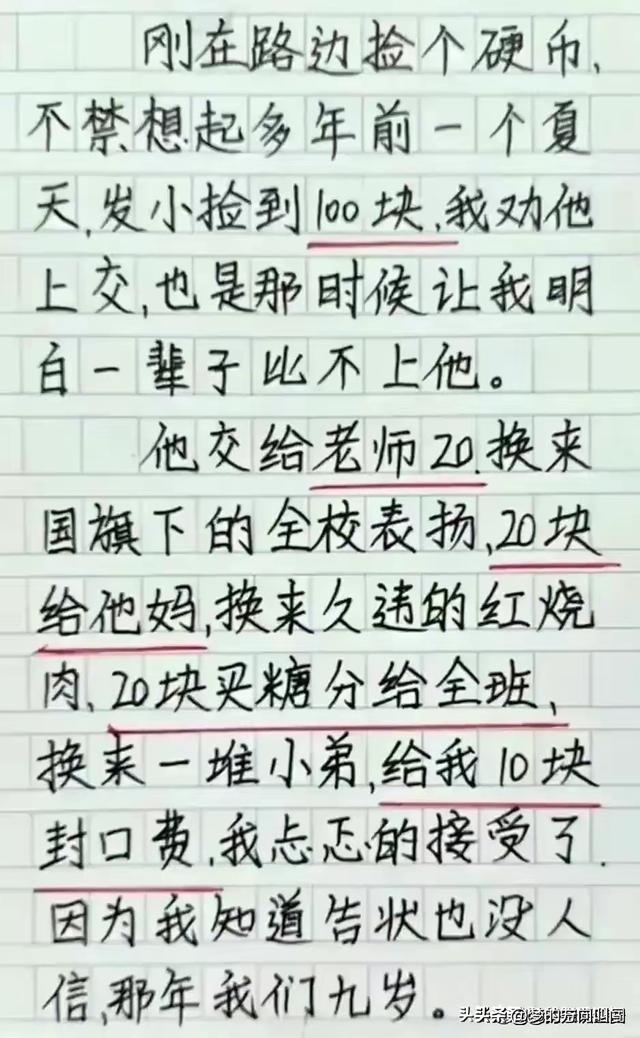 刚在路边捡个硬币,
不禁想起多年前一个夏
天,发小捡到100块,我劝他
上交,也是那时候让我明
白一辈子比不上他。
他交给老师20.换来
国旗下的全校表扬,20块
给他妈,换来久违的红烧
肉、20块买糖分给全班,
换来一堆小弟,给我10块
封口费,我忐忑的接受了.
因为我知道告状也没人
信,那年我们九岁。